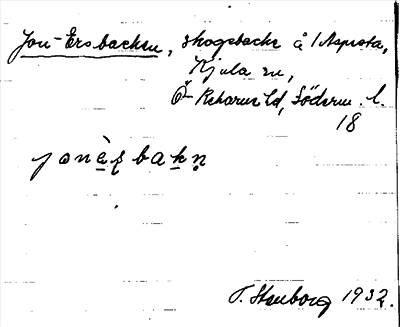 Jon-Ersbacken, skogsbacke å 1 Aspesta,
Kjula sn,
Ö-Rekarne hd, Söderm. l.
18
jonèʃbakn
T. Stenborg 1932.